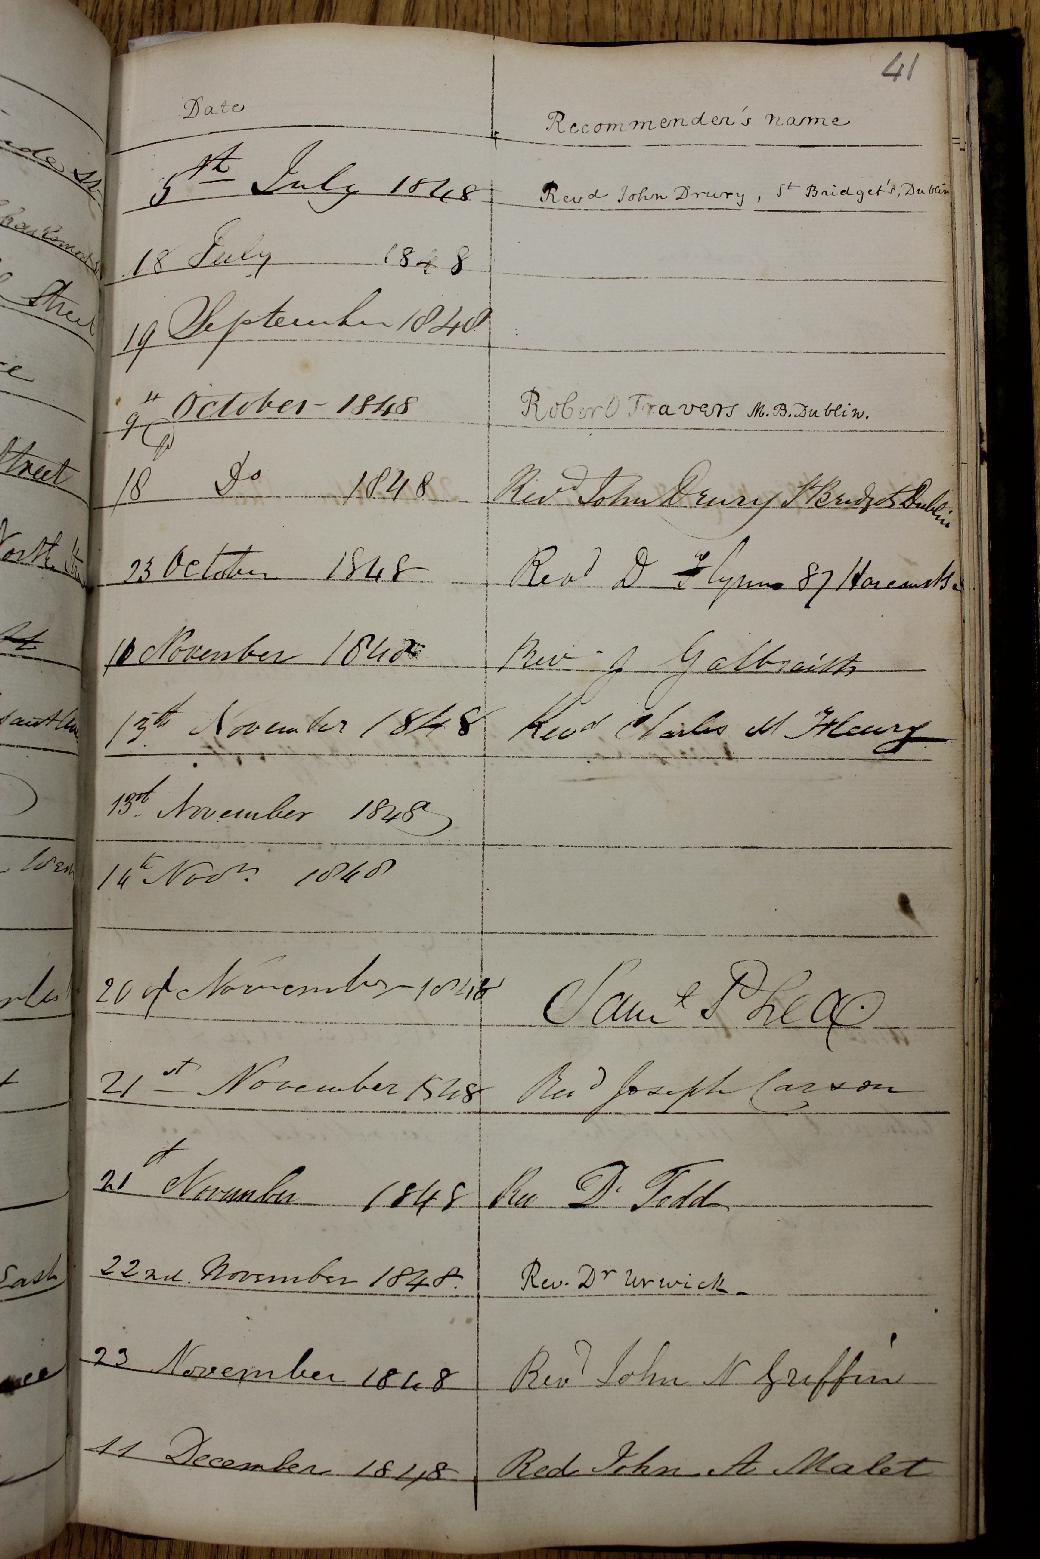 41
Date Recommender's name
5th July 1848 Revd John Drury, St Bridget's, Dublin
18 July 1848
19 September 1848
9th October 1848 Robert Travers M.B. Dublin.
18 Do 1848 Revd John Drury St Bridgets Dublin
23 October 1848 Revd D Flynn 87
10 November 1848 Rev J Galbraith
13th November 1848 Revd Charles M Fleury
13th November 1848
14th Novr. 1848
20 of November 1848 Saml P Lea
21st November 1848 Revd Joseph Carson
21st November 1848 Rev Dr Todd
22nd November 1848. Rev. Dr Urwick
23 November 1848 Revd John N Griffin
11 December 1848 Red John A Malet
Street
Street
North
East